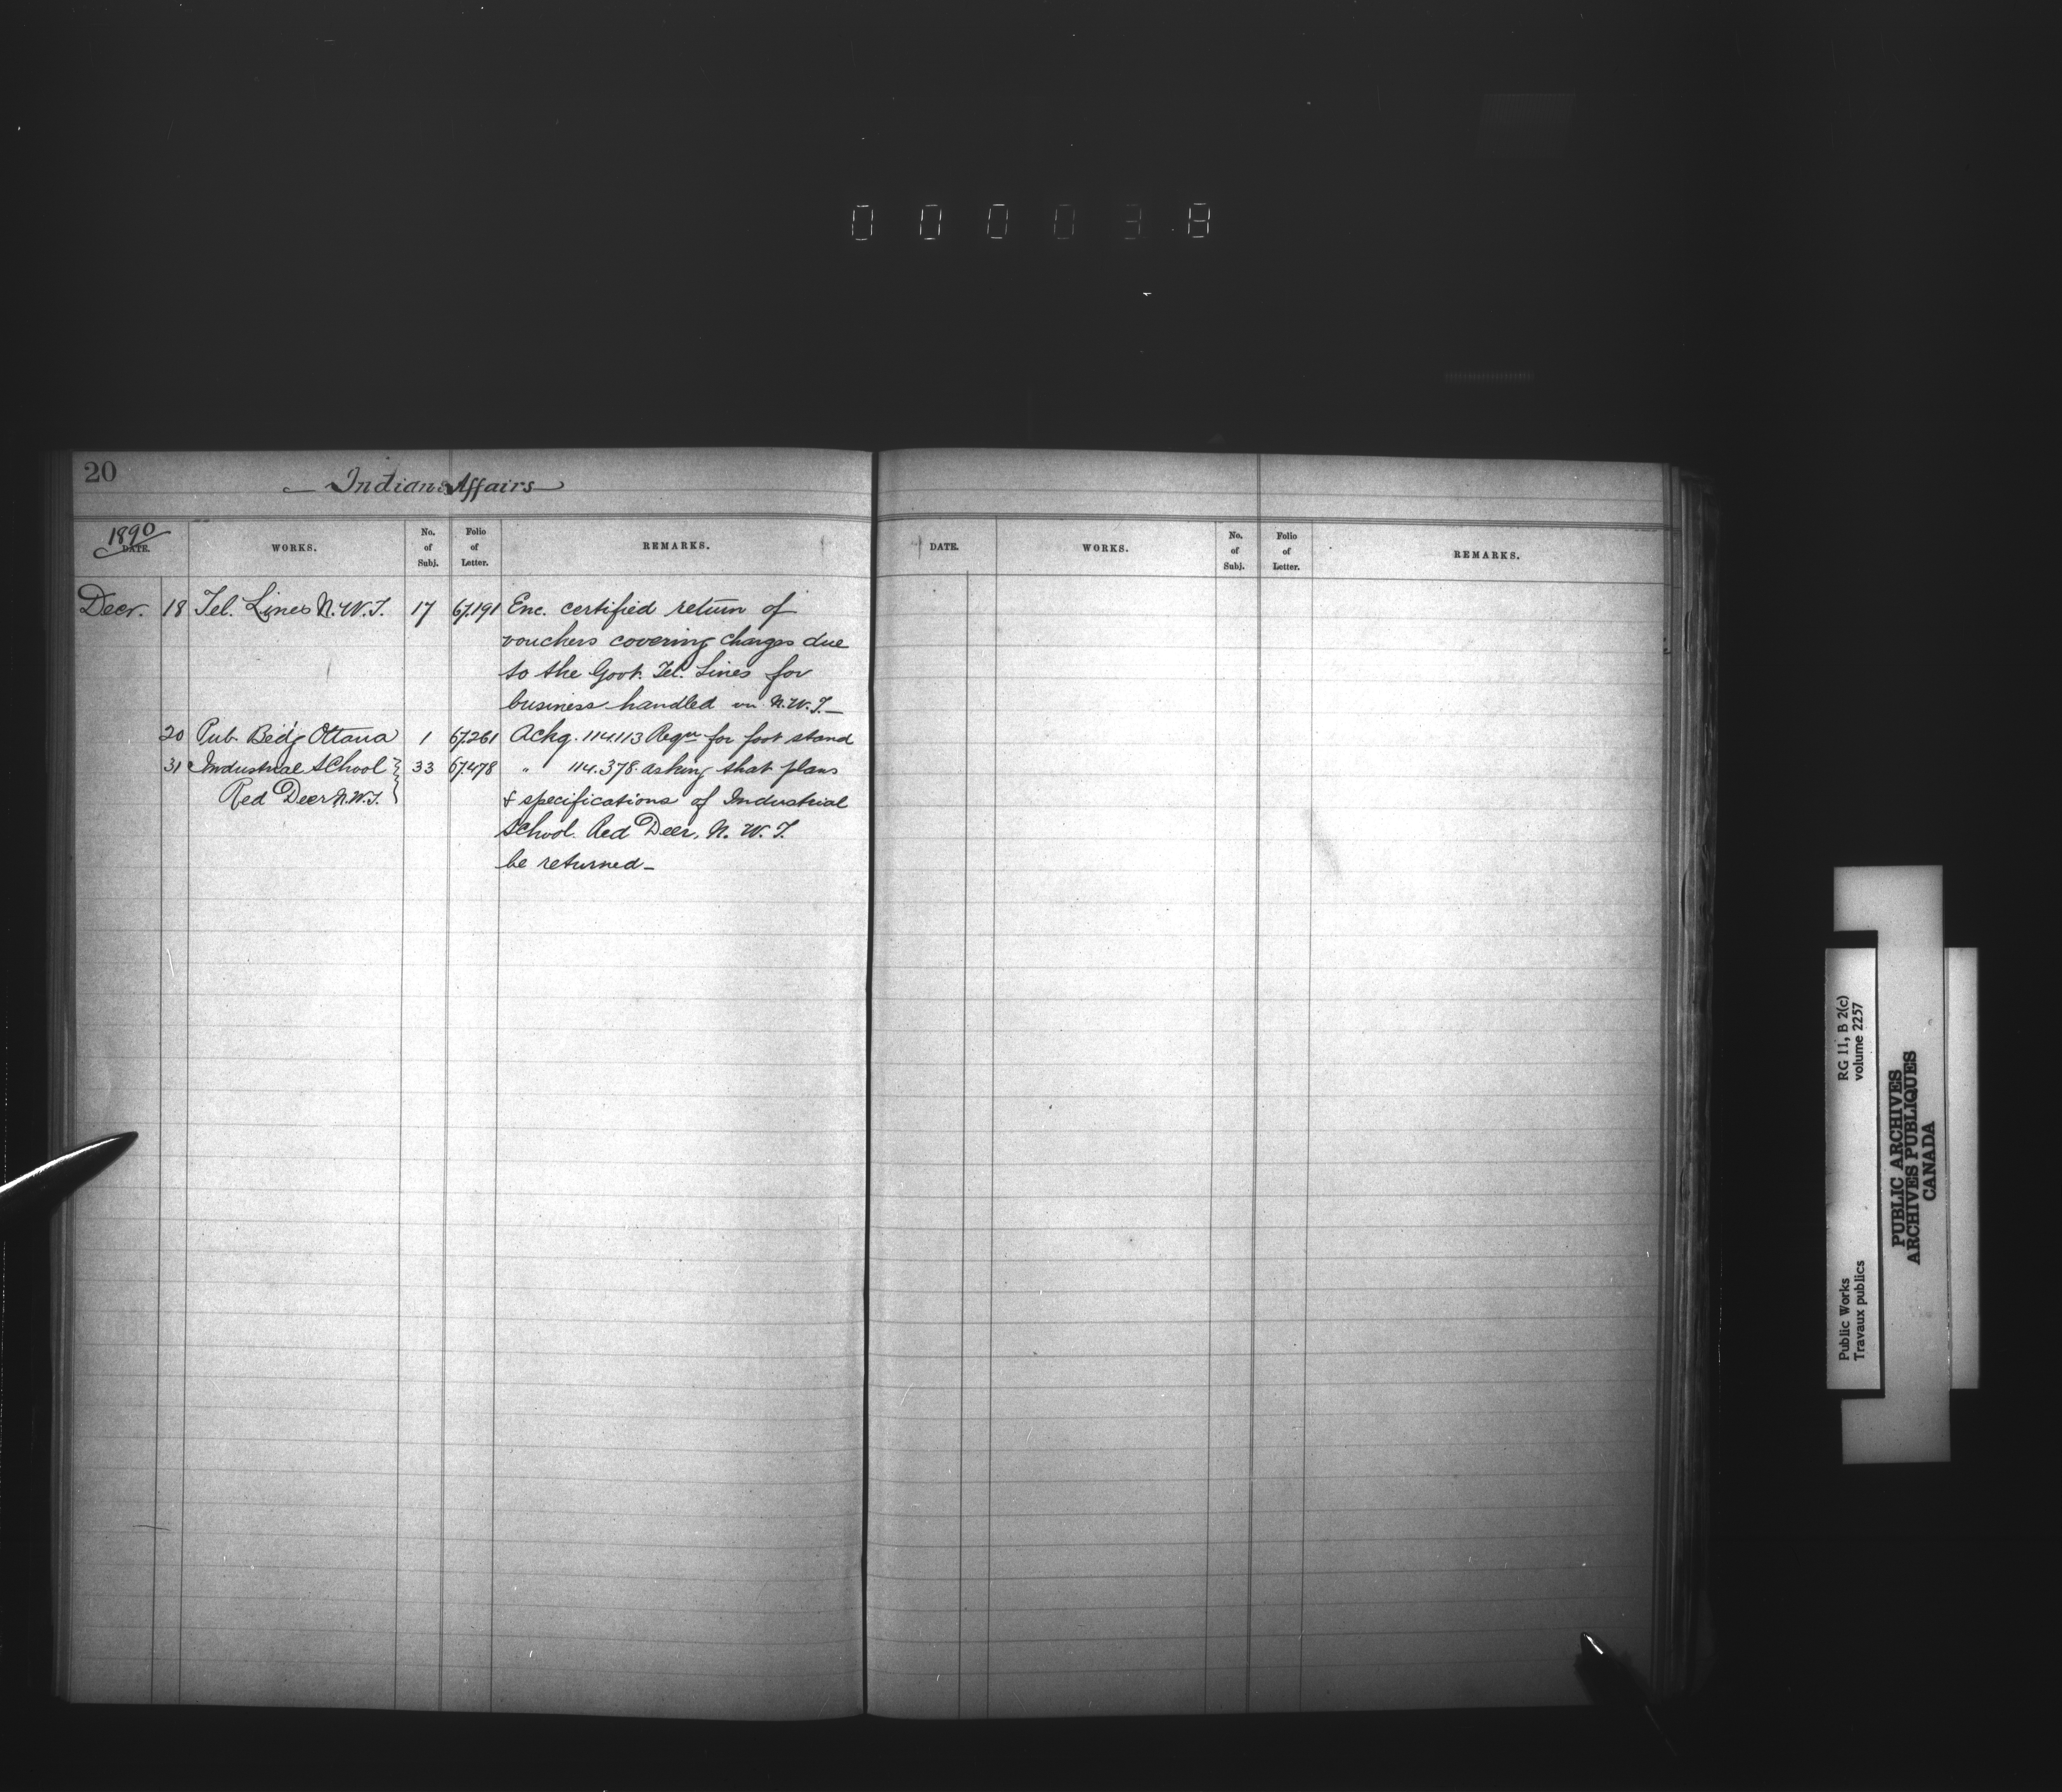 000038
20
Indian Affairs
1890
DATE. WORKS. No. of Subj. Folio of Letter. REMARKS.
Decr. 18 Tel. Lines N.W.T. 17 67.191 Enc. certified return of
vouchers covering charges due
to the Govt. Tel. Lines for
business handled in N.W.T.
20 Pub. Bldg Ottawa 1 67.261 Ackg. 114.113 Reqn for foot stand
31 Industrial School 33 67.478 " 114.378 asking that plans
Red Deer N.W.T. & specifications of Industrial
School Red Deer, N. W. T.
be returned
DATE. WORKS. No. of Subj. Folio of Letter. REMARKS.
Public Works RG 11, B 2(c)
Travaux publics volume 2257
PUBLIC ARCHIVES
ARCHIVES PUBLIQUES
CANADA